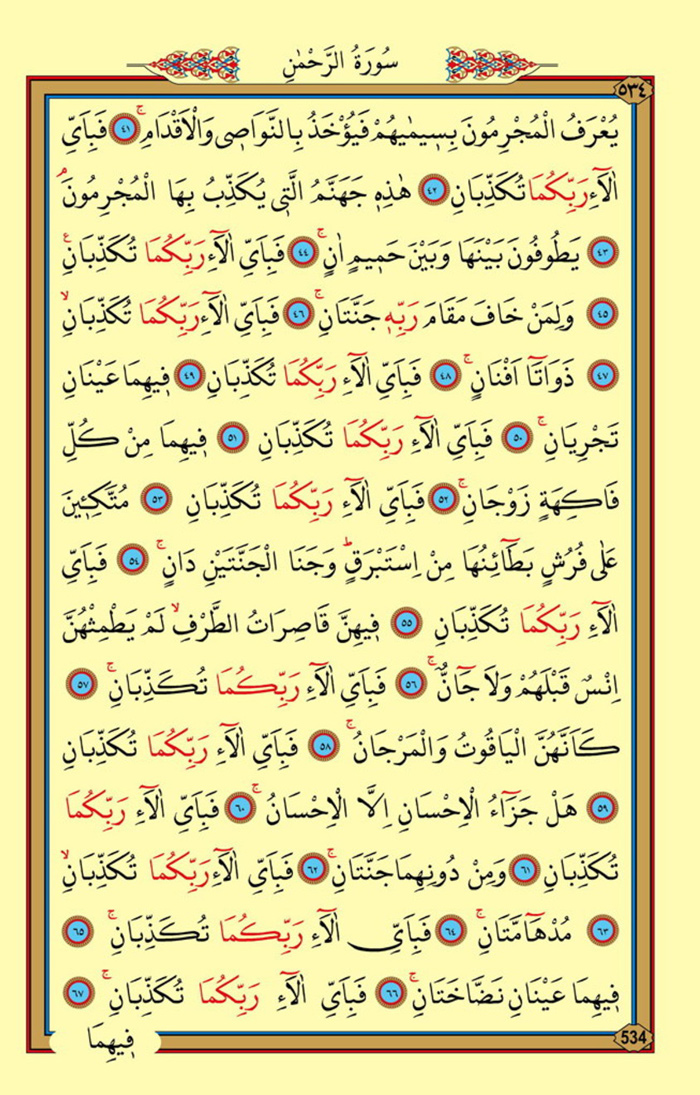 سُورَةُ الرَّحْمٰنِ
٥٣٤
يُعْرَفُ الْمُجْرِمُونَ بِسِيمٰيهُمْ فَيُؤْخَذُ بِالنَّوَاصِى وَالْاَقْدَامِۚ ٤١ فَبِاَىِّ
اٰلَٓاءِ رَبِّكُمَا تُكَذِّبَانِ ٤٢ هٰذِهِ جَهَنَّمُ الَّتِى يُكَذِّبُ بِهَا الْمُجْرِمُونَۘ
٤٣ يَطُوفُونَ بَيْنَهَا وَبَيْنَ حَمِيمٍ اٰنٍۚ ٤٤ فَبِاَىِّ اٰلَٓاءِ رَبِّكُمَا تُكَذِّبَانِۚ
٤٥ وَلِمَنْ خَافَ مَقَامَ رَبِّهِ جَنَّتَانِۚ ٤٦ فَبِاَىِّ اٰلَٓاءِ رَبِّكُمَا تُكَذِّبَانِۙ
٤٧ ذَوَاتَٓا اَفْنَانٍۚ ٤٨ فَبِاَىِّ اٰلَٓاءِ رَبِّكُمَا تُكَذِّبَانِ ٤٩ فِيهِمَا عَيْنَانِ
تَجْرِيَانِۚ ٥٠ فَبِاَىِّ اٰلَٓاءِ رَبِّكُمَا تُكَذِّبَانِ ٥١ فِيهِمَا مِنْ كُلِّ
فَاكِهَةٍ زَوْجَانِۚ ٥٢ فَبِاَىِّ اٰلَٓاءِ رَبِّكُمَا تُكَذِّبَانِ ٥٣ مُتَّكِـِٔينَ
عَلٰى فُرُشٍ بَطَٓائِنُهَا مِنْ اِسْتَبْرَقٍۜ وَجَنَا الْجَنَّتَيْنِ دَانٍۚ ٥٤ فَبِاَىِّ
اٰلَٓاءِ رَبِّكُمَا تُكَذِّبَانِ ٥٥ فِيهِنَّ قَاصِرَاتُ الطَّرْفِۙ لَمْ يَطْمِثْهُنَّ
اِنْسٌ قَبْلَهُمْ وَلَا جَٓانٌّۚ ٥٦ فَبِاَىِّ اٰلَٓاءِ رَبِّكُمَا تُكَذِّبَانِۚ ٥٧
كَاَنَّهُنَّ الْيَاقُوتُ وَالْمَرْجَانُۚ ٥٨ فَبِاَىِّ اٰلَٓاءِ رَبِّكُمَا تُكَذِّبَانِ
٥٩ هَلْ جَزَٓاءُ الْاِحْسَانِ اِلَّا الْاِحْسَانُۚ ٦٠ فَبِاَىِّ اٰلَٓاءِ رَبِّكُمَا
تُكَذِّبَانِ ٦١ وَمِنْ دُونِهِمَا جَنَّتَانِۚ ٦٢ فَبِاَىِّ اٰلَٓاءِ رَبِّكُمَا تُكَذِّبَانِۙ
٦٣ مُدْهَٓامَّتَانِۚ ٦٤ فَبِاَىِّ اٰلَٓاءِ رَبِّكُمَا تُكَذِّبَانِۚ ٦٥
فِيهِمَا عَيْنَانِ نَضَّاخَتَانِۚ ٦٦ فَبِاَىِّ اٰلَٓاءِ رَبِّكُمَا تُكَذِّبَانِۚ ٦٧
فِيهِمَا
534